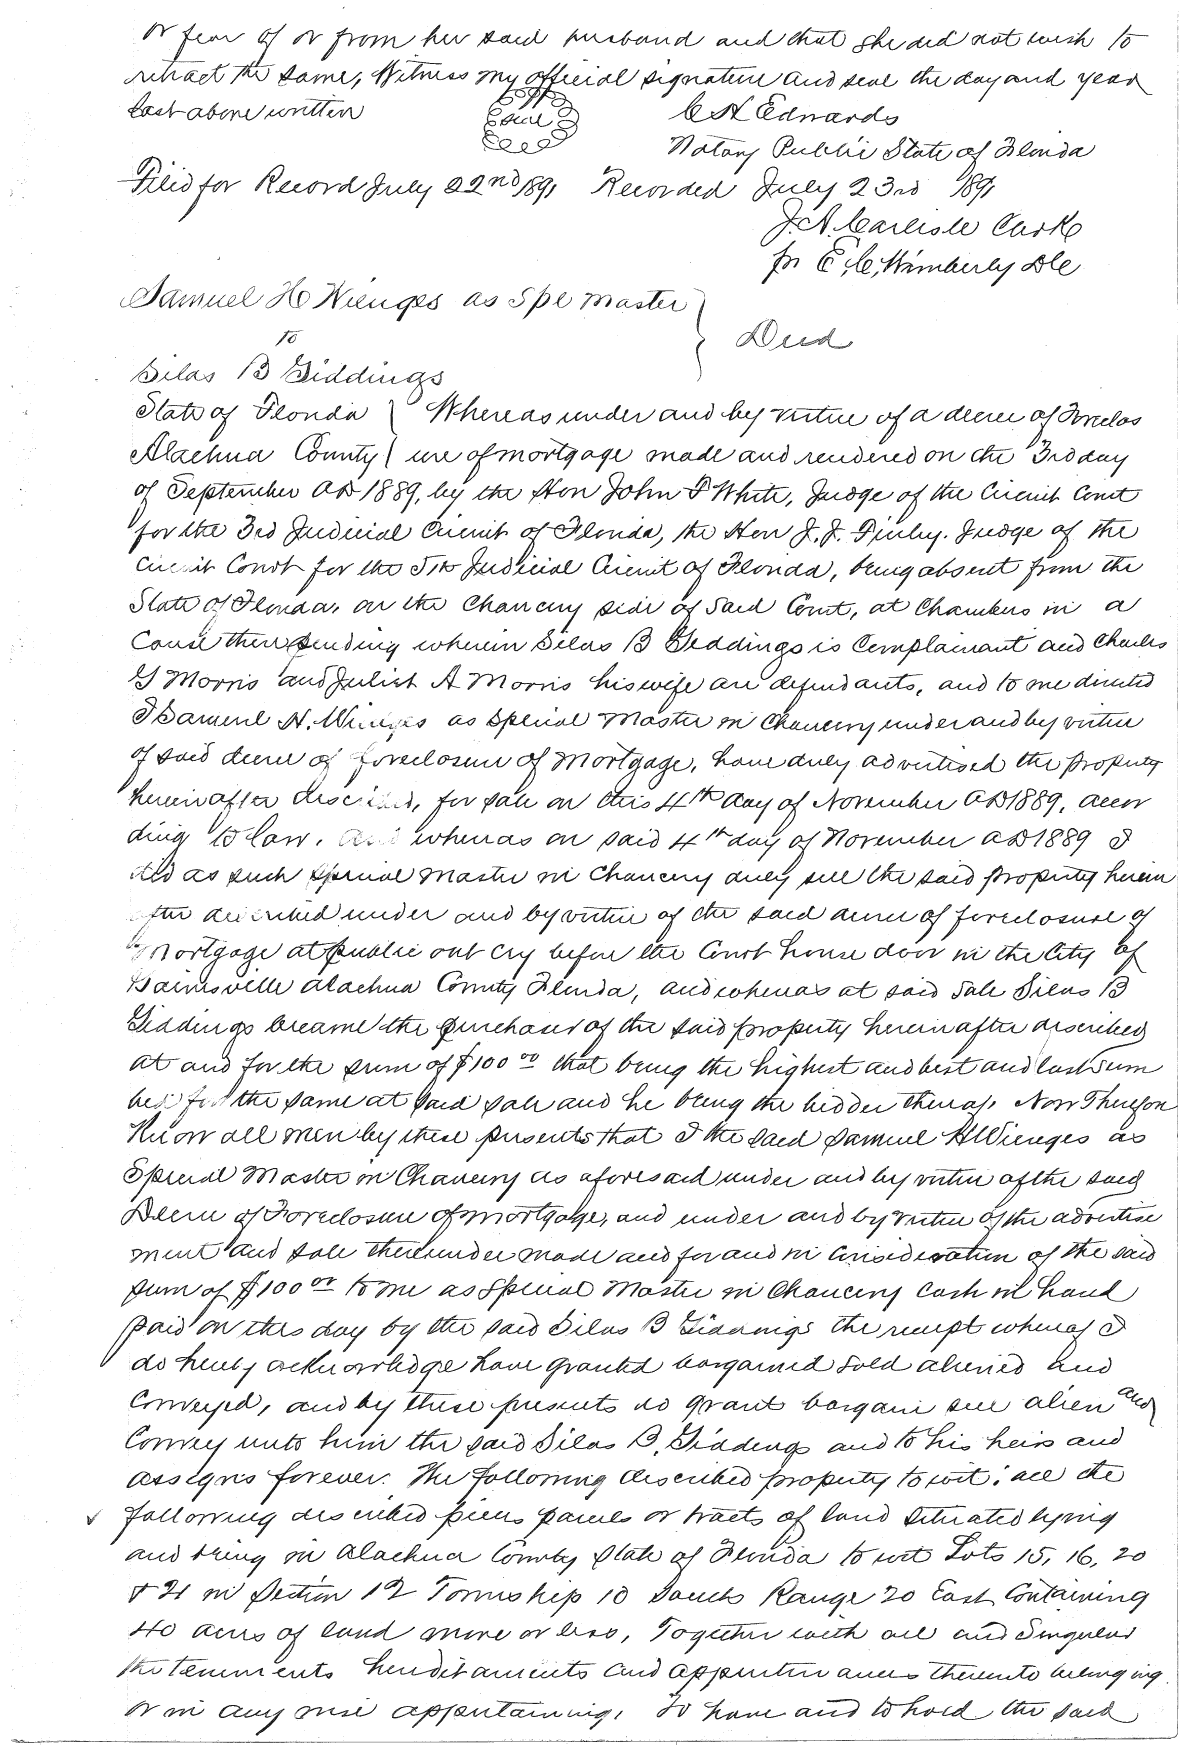 or fear of or from her said husband and that she did not wish to
retract the same, Witness my official signature and seal the day and year
last above written
Seal
C H Edwards
Notary Public State of Florida
Filed for Record July 22nd 1891 Recorded July 23rd 1891
J. A. Carlisle Clerk
pr E, C, Wimberly DC
Samuel H Wienges as Spe Master
to
Deed
Silas B Giddings
State of Florida Whereas under and by virtue of a decree of Foreclos
Alachua County ure of mortgage made and rendered on the 3rd day
of September AD 1889, by the Hon John F White, Judge of the Circuit Court
for the 3rd Judicial Circuit of Florida, the Hon J. J. Finley. Judge of the
Circuit Court for the 5th Judicial Circuit of Florida, being absent from the
State of Florida, on the Chancery side of Said Court, at Chambers in a
Cause then pending wherein Silas B Giddings is Complainant and Charles
G Morris and Juliet A Morris his wife are defendants, and to me directed
I Samuel H. Wienges as Special Master in Chancery under and by virtue
of said decree of foreclosure of Mortgage, have duly advertised the property
hereinafter described, for sale on this 4th day of November AD 1889, accor
ding to law. And whereas on said 4th day of November AD 1889 I
did as such special master in Chancery duly sell the said property herein
after described under and by virtue of the said decree of foreclosure of
Mortgage at public out cry before the Court house door in the City of
Gainesville Alachua County Florida, and whereas at said Sale Silas B
Giddings became the purchaser of the said property herein after described
at and for the sum of $100 00 that being the highest and best and last Sum
bid for the same at said sale and he being the bidder thereof, Now Therefore
Know all men by these presents that I the said Samuel H Wienges as
Special Master in Chancery as aforesaid under and by virtue of the said
Decree of Foreclosure of mortgage, and under and by virtue of the advertise
ment and sale thereunder made and for and in consideration of the said
sum of $100 00 to me as Special Master in Chancery Cash in hand
paid on this day by the said Silas B Giddings the receipt whereof I
do hereby acknowledge have granted bargained sold aliened and
Conveyed, and by these presents do grant bargain sell alien and
Convey unto him the said Silas B. Giddings and to his heirs and
assigns forever. The following described property to wit: all the
following described pieces parcels or tracts of land situated lying
and being in Alachua County State of Florida to wit Lots 15, 16, 20
& 21 in Section 12 Township 10 South Range 20 East Containing
40 acres of land more or less, Together with all and Singular
the tenements hereditaments and appurtenances thereunto belonging
or in any wise appertaining, To have and to hold the said